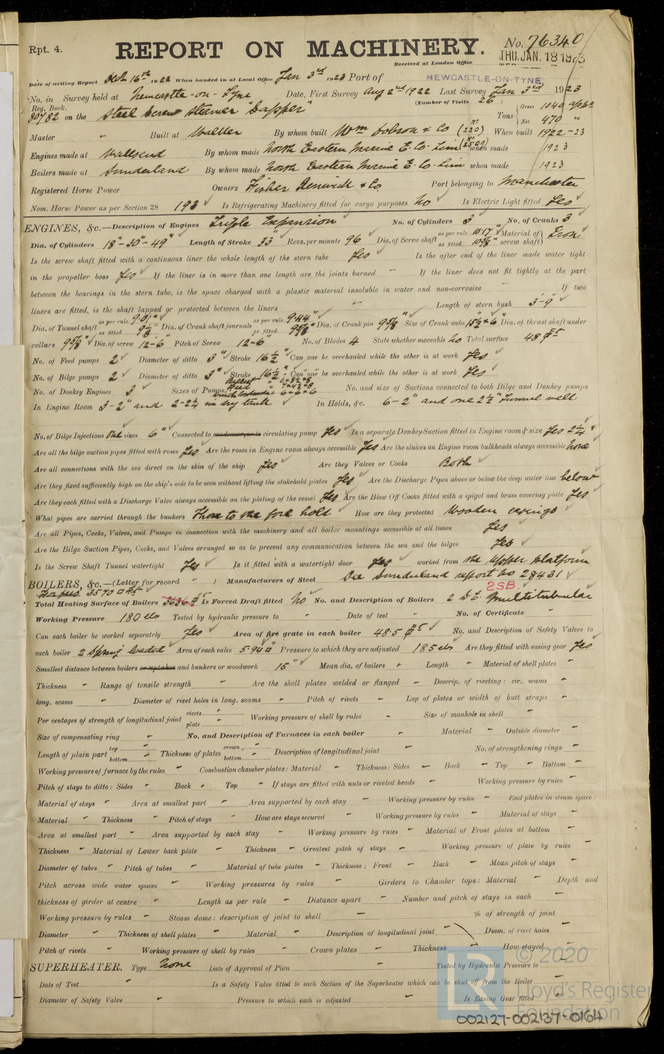 Rpt. 4. REPORT ON MACHINERY. No. 76340
Received at London Office THU. JAN. 18 1923
Date of writing Report 16th 1922 When handed in at Local Office Jan 3rd 1923 Port of NEWCASTLE-ON-TYNE
No. in Survey held at Newcastle-on-Tyne Date, First Survey Aug 2nd 1922 Last Survey Jan 3rd 1923
Reg. Book. (Number of Visits 26)
80982 on the Steel Screw Steamer "Dapper" Tons Gross 1040 Net 470
Master " Built at By whom built Wm Dobson & Co When built 1922-23
Engines made at Wallsend By whom made North Eastern Marine E. Co. Lim when made 1923
Boilers made at Sunderland By whom made North Eastern Marine E. Co. Lim when made 1923
Registered Horse Power Owners Fisher Renwick & Co Port belonging to Manchester
Nom. Horse Power as per Section 28 193 Is Refrigerating Machinery fitted for cargo purposes No Is Electric Light fitted Yes
ENGINES, &c.—Description of Engines Triple Expansion No. of Cylinders 3 No. of Cranks 3
Dia. of Cylinders 18"-30"-49" Length of Stroke 33" Revs. per minute 96 Dia. of Screw shaft as per rule as fitted Material of screw shaft Iron
Is the screw shaft fitted with a continuous liner the whole length of the stern tube Yes Is the after end of the liner made water tight
in the propeller boss Yes If the liner is in more than one length are the joints burned - If the liner does not fit tightly at the part
between the bearings in the stern tube, is the space charged with a plastic material insoluble in water and non-corrosive - If two
liners are fitted, is the shaft lapped or protected between the liners Length of stern bush 3'-9"
Dia. of Tunnel shaft as per rule as fitted Dia. of Crank shaft journals as per rule 9.44" as fitted 9 5/8" Dia. of Crank pin 9 5/8" Size of Crank webs Dia. of thrust shaft under
collars 9 5/8" Dia. of screw 12-6" Pitch of Screw 12-6" No. of Blades 4 State whether moveable No Total surface 48
No. of Feed pumps 2 Diameter of ditto 3" Stroke 16 1/2" Can one be overhauled while the other is at work Yes
No. of Bilge pumps 2 Diameter of ditto 3" Stroke 16 1/2" Can one be overhauled while the other is at work Yes
No. of Donkey Engines 3 Sizes of Pumps No. and size of Suctions connected to both Bilge and Donkey pumps
In Engine Room 3-2" and 2-2 1/2" in dry tank In Holds, &c. 6-2" and one 2 1/2" Tunnel well
No. of Bilge Injections One sizes 6" Connected to condenser, or to circulating pump Yes Is a separate Donkey Suction fitted in Engine room & size Yes 2 1/2"
Are all the bilge suction pipes fitted with roses Yes Are the roses in Engine room always accessible Yes Are the sluices on Engine room bulkheads always accessible None
Are all connections with the sea direct on the skin of the ship Yes Are they Valves or Cocks Both
Are they fixed sufficiently high on the ship's side to be seen without lifting the stokehold plates Yes Are the Discharge Pipes above or below the deep water line below
Are they each fitted with a Discharge Valve always accessible on the plating of the vessel Yes Are the Blow Off Cocks fitted with a spigot and brass covering plate Yes
What pipes are carried through the bunkers Those to the fore hold How are they protected Wooden casings
Are all Pipes, Cocks, Valves, and Pumps in connection with the machinery and all boiler mountings accessible at all times Yes
Are the Bilge Suction Pipes, Cocks, and Valves arranged so as to prevent any communication between the sea and the bilges Yes
Is the Screw Shaft Tunnel watertight Yes Is it fitted with a watertight door Yes worked from the Upper platform
BOILERS, &c.—(Letter for record ) Manufacturers of Steel See Sunderland report No 28431
2SB.
Total Heating Surface of Boilers Is Forced Draft fitted No No. and Description of Boilers 2 S.E. Multitubular
Working Pressure 180 lbs Tested by hydraulic pressure to " Date of test " No. of Certificate "
Can each boiler be worked separately Yes Area of fire grate in each boiler 48.5 No. and Description of Safety Valves to
each boiler 2 Spring loaded Area of each valve 5.94 Pressure to which they are adjusted 185 lbs Are they fitted with easing gear Yes
Smallest distance between boilers or uptakes and bunkers or woodwork 15" Mean dia. of boilers " Length " Material of shell plates "
Thickness " Range of tensile strength " Are the shell plates welded or flanged " Descrip. of riveting: cir. seams "
long. seams " Diameter of rivet holes in long. seams " Pitch of rivets " Lap of plates or width of butt straps "
Per centages of strength of longitudinal joint rivets plate Working pressure of shell by rules " Size of manhole in shell "
Size of compensating ring " No. and Description of Furnaces in each boiler " Material " Outside diameter "
Length of plain part top bottom Thickness of plates crown bottom Description of longitudinal joint " No. of strengthening rings "
Working pressure of furnace by the rules " Combustion chamber plates: Material " Thickness: Sides " Back " Top " Bottom "
Pitch of stays to ditto: Sides " Back " Top " If stays are fitted with nuts or riveted heads " Working pressure by rules "
Material of stays " Area at smallest part " Area supported by each stay " Working pressure by rules " End plates in steam space
Material " Thickness " Pitch of stays " How are stays secured " Working pressure by rules " Material of stays "
Area at smallest part " Area supported by each stay " Working pressure by rules " Material of Front plates at bottom "
Thickness " Material of Lower back plate " Thickness " Greatest pitch of stays " Working pressure of plate by rules "
Diameter of tubes " Pitch of tubes " Material of tube plates " Thickness: Front " Back " Mean pitch of stays "
Pitch across wide water spaces " Working pressures by rules " Girders to Chamber tops: Material " Depth and
thickness of girder at centre " Length as per rule " Distance apart " Number and pitch of stays in each "
Working pressure by rules " Steam dome: description of joint to shell " % of strength of joint
Diameter " Thickness of shell plates " Material " Description of longitudinal joint " Diam. of rivet holes
Pitch of rivets " Working pressure of shell by rules " Crown plates " Thickness " How stayed "
SUPERHEATER. Type None Date of Approval of Plan " Tested by Hydraulic Pressure to
Date of Test " Is a Safety Valve fitted to each Section of the Superheater which can be shut off from the Boiler
Diameter of Safety Valve " Pressure to which each is adjusted " Is Easing Gear fitted "
© 2020
LR
Lloyd's Register
Foundation
002127-002137-0164